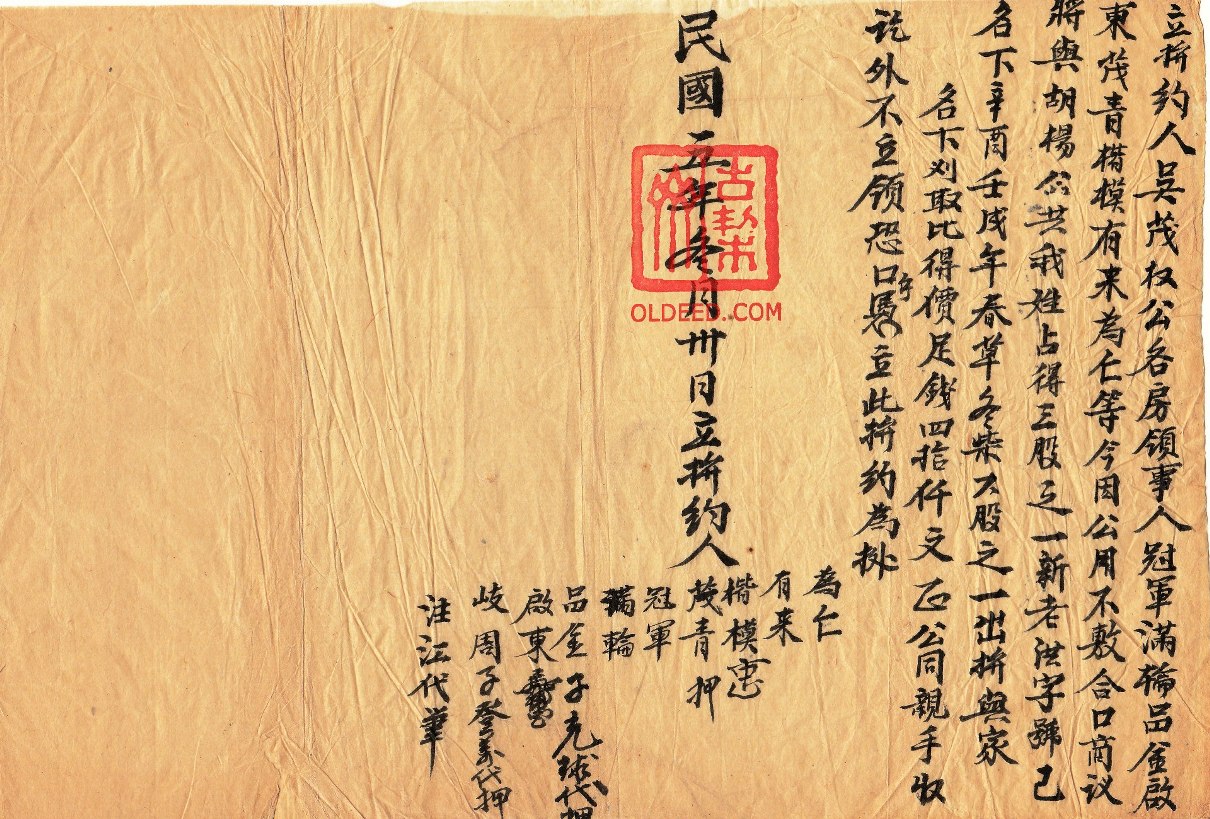 立拚約人吳茂权公各房領事人冠軍滿輪品金啟
東茂青楷模有来為仁等今因公用不敷合口商议
將與胡楊公共我姓占得三股之一新老洪字號己
名下辛酉壬戌年春草冬柴六股之一出拚與家
名下刈取比得價足錢四拾仟文正公同親手收
訖外不立領恐口字憑立此拚約為摅
民國五年冬月卅日立拚約人
為仁
有来
楷模
茂青押
冠軍
滿輪
品金子
代押
啟東
岐周子登
代押
注江代筆
古契
OLDEED.COM